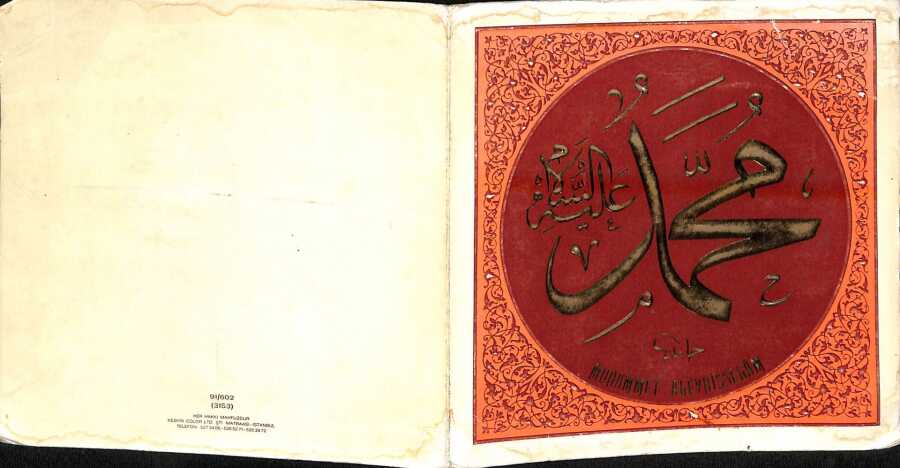 91/602
(3153)
HER HAKKI MAHFUZDUR
KESKİN COLOR LTD. ŞTİ. MATBAASI-İSTANBUL
محمد
عليه السلام
MUHAMMET ALEYHİSSELÂM